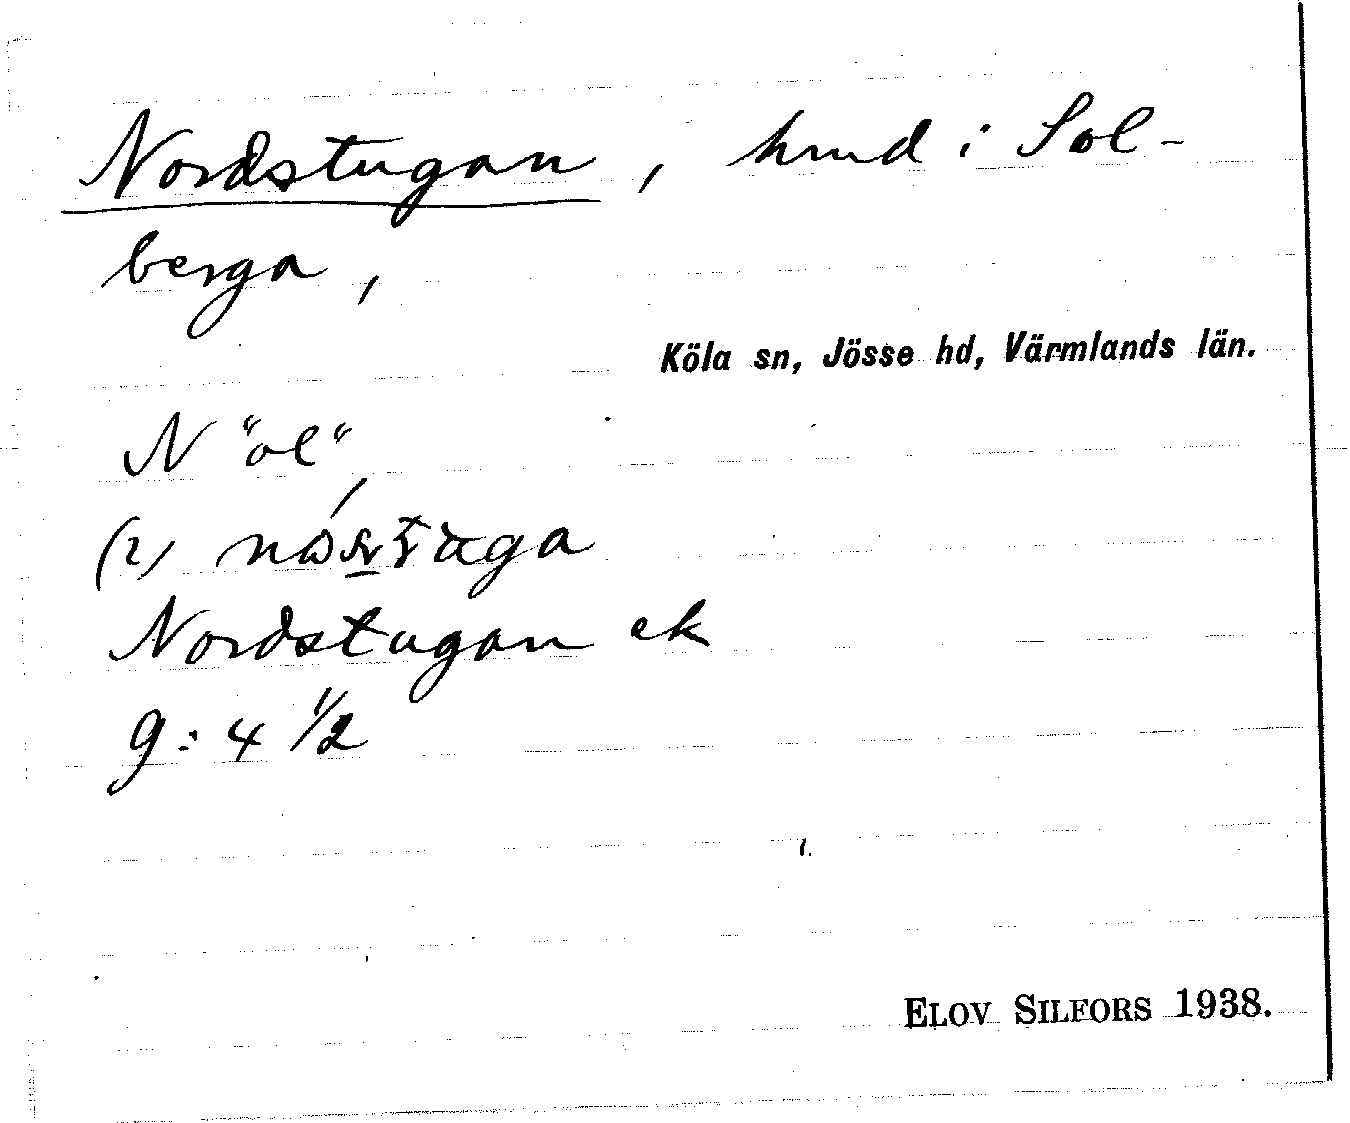 Nordstugan, hmd i Sol-
berga,
Köla sn, Jösse hd, Värmlands län.
N "öl"
(2)
Nordstugan ek
g: 4 1/2
ELOV SILFORS 1938.